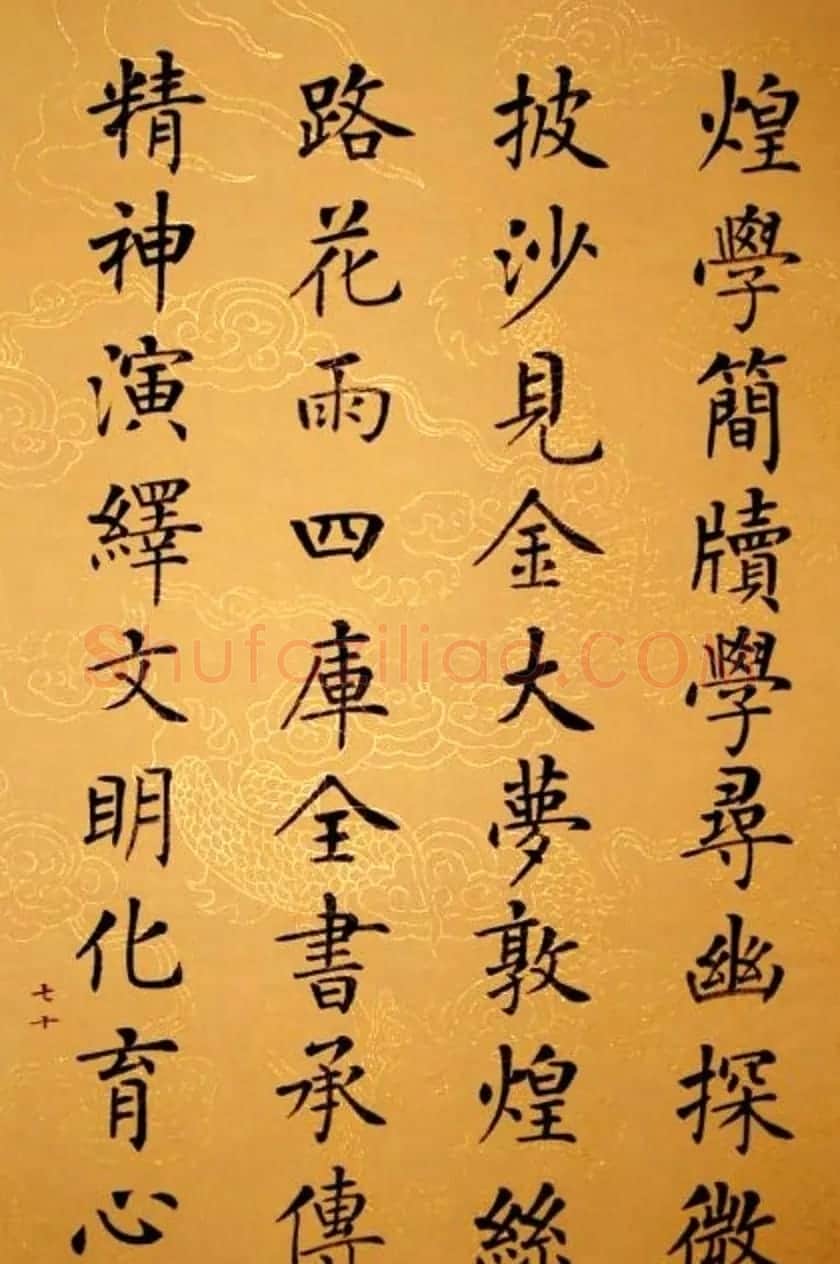 煌學簡牘學尋幽探微
披沙見金大夢敦煌絲
路花雨四庫全書承傳
精神演繹文明化育心
七十
shufaziliao.com